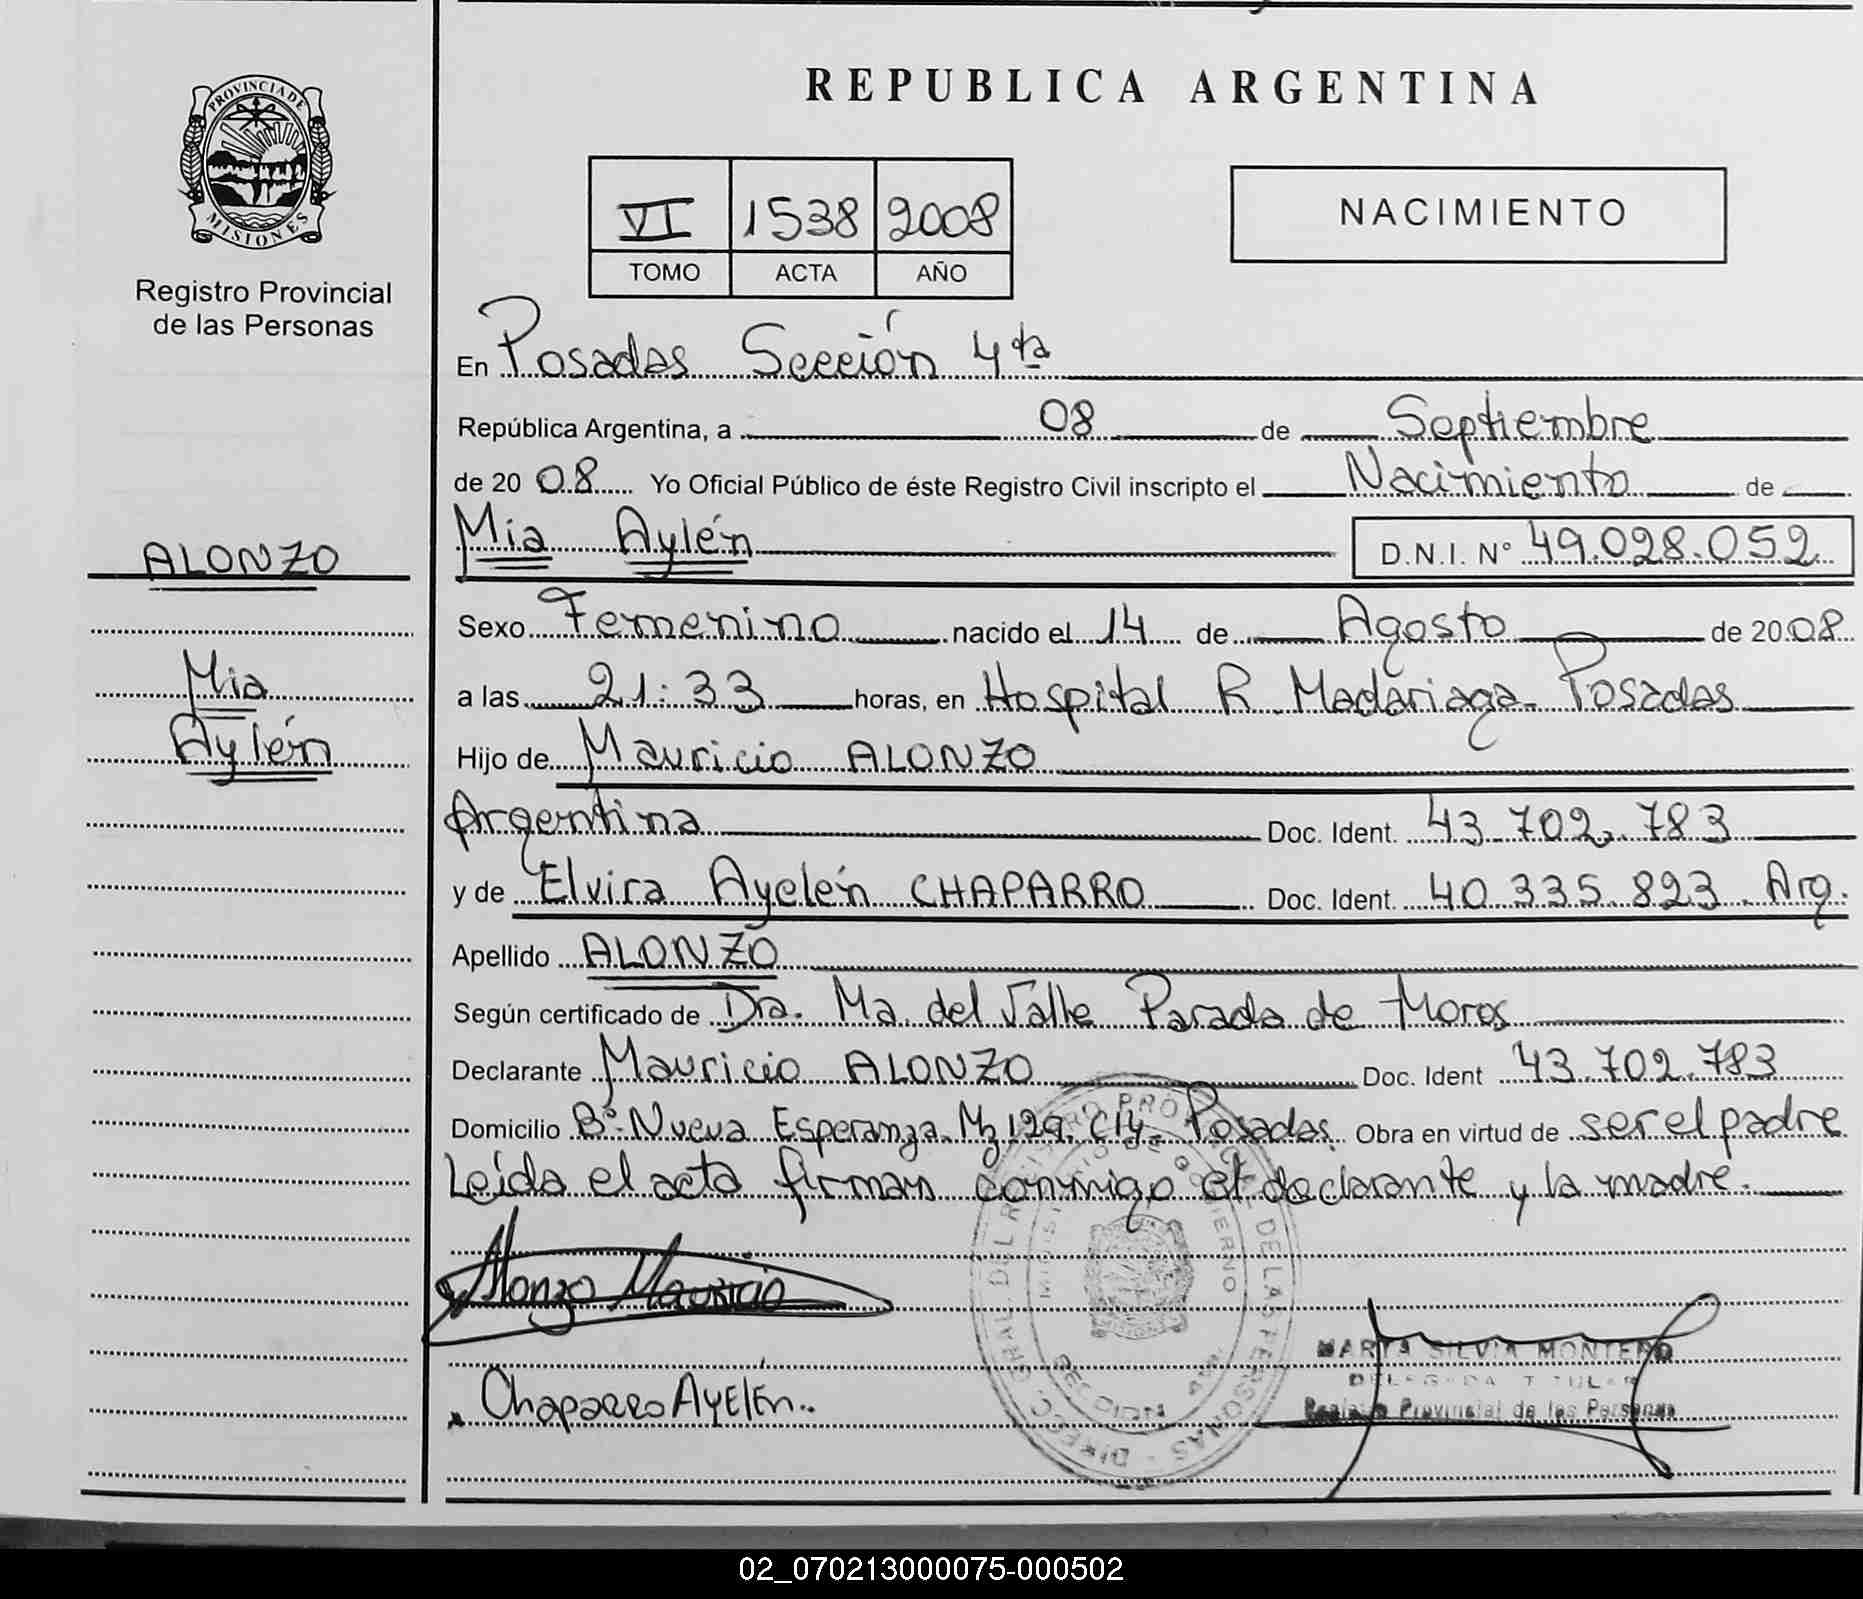 REPUBLICA ARGENTINA
PROVINCIA DE
MISIONES
Registro Provincial
de las Personas
VI 1538 2008
TOMO ACTA AÑO
NACIMIENTO
En Posadas Sección 4ta
República Argentina, a 08 de Septiembre
de 20 08 Yo Oficial Público de éste Registro Civil inscripto el Nacimiento de
ALONZO
Mia
Aylén
Mia Aylén D.N.I. N° 49.028.052
Sexo Femenino nacido el 14 de Agosto de 20 08
a las 21:33 horas, en Hospital R. Madariaga - Posadas
Hijo de Mauricio ALONZO
Argentina Doc. Ident. 43.702.783
y de Elvira Ayelén CHAPARRO Doc. Ident. 40.335.823 Arg.
Apellido ALONZO
Según certificado de Dra. Ma. del Valle Parada de Moros
Declarante Mauricio ALONZO Doc. Ident 43.702.783
Domicilio B° Nueva Esperanza. Mz 129. C14- Posadas. Obra en virtud de ser el padre
Leída el acta firman conmigo el declarante y la madre.
Alonzo Mauricio
Chaparro AyElén..
MARTA SILVIA MONTERO
DELEGADA TITULAR
Registro Provincial de las Personas
02_070213000075-000502